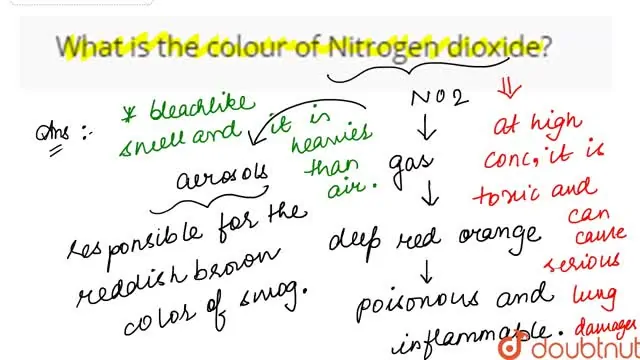 What is the colour of Nitrogen dioxide?
Ans :-
* bleachlike
smell and it is
heavies
than
air.
aerosols
responsible for the
reddish brown
color of smog.
NO2
gas
deep red orange
poisonous and
inflammable.
at high
conc, it is
toxic and
can
cause
serious
lung
damages
doubtnut